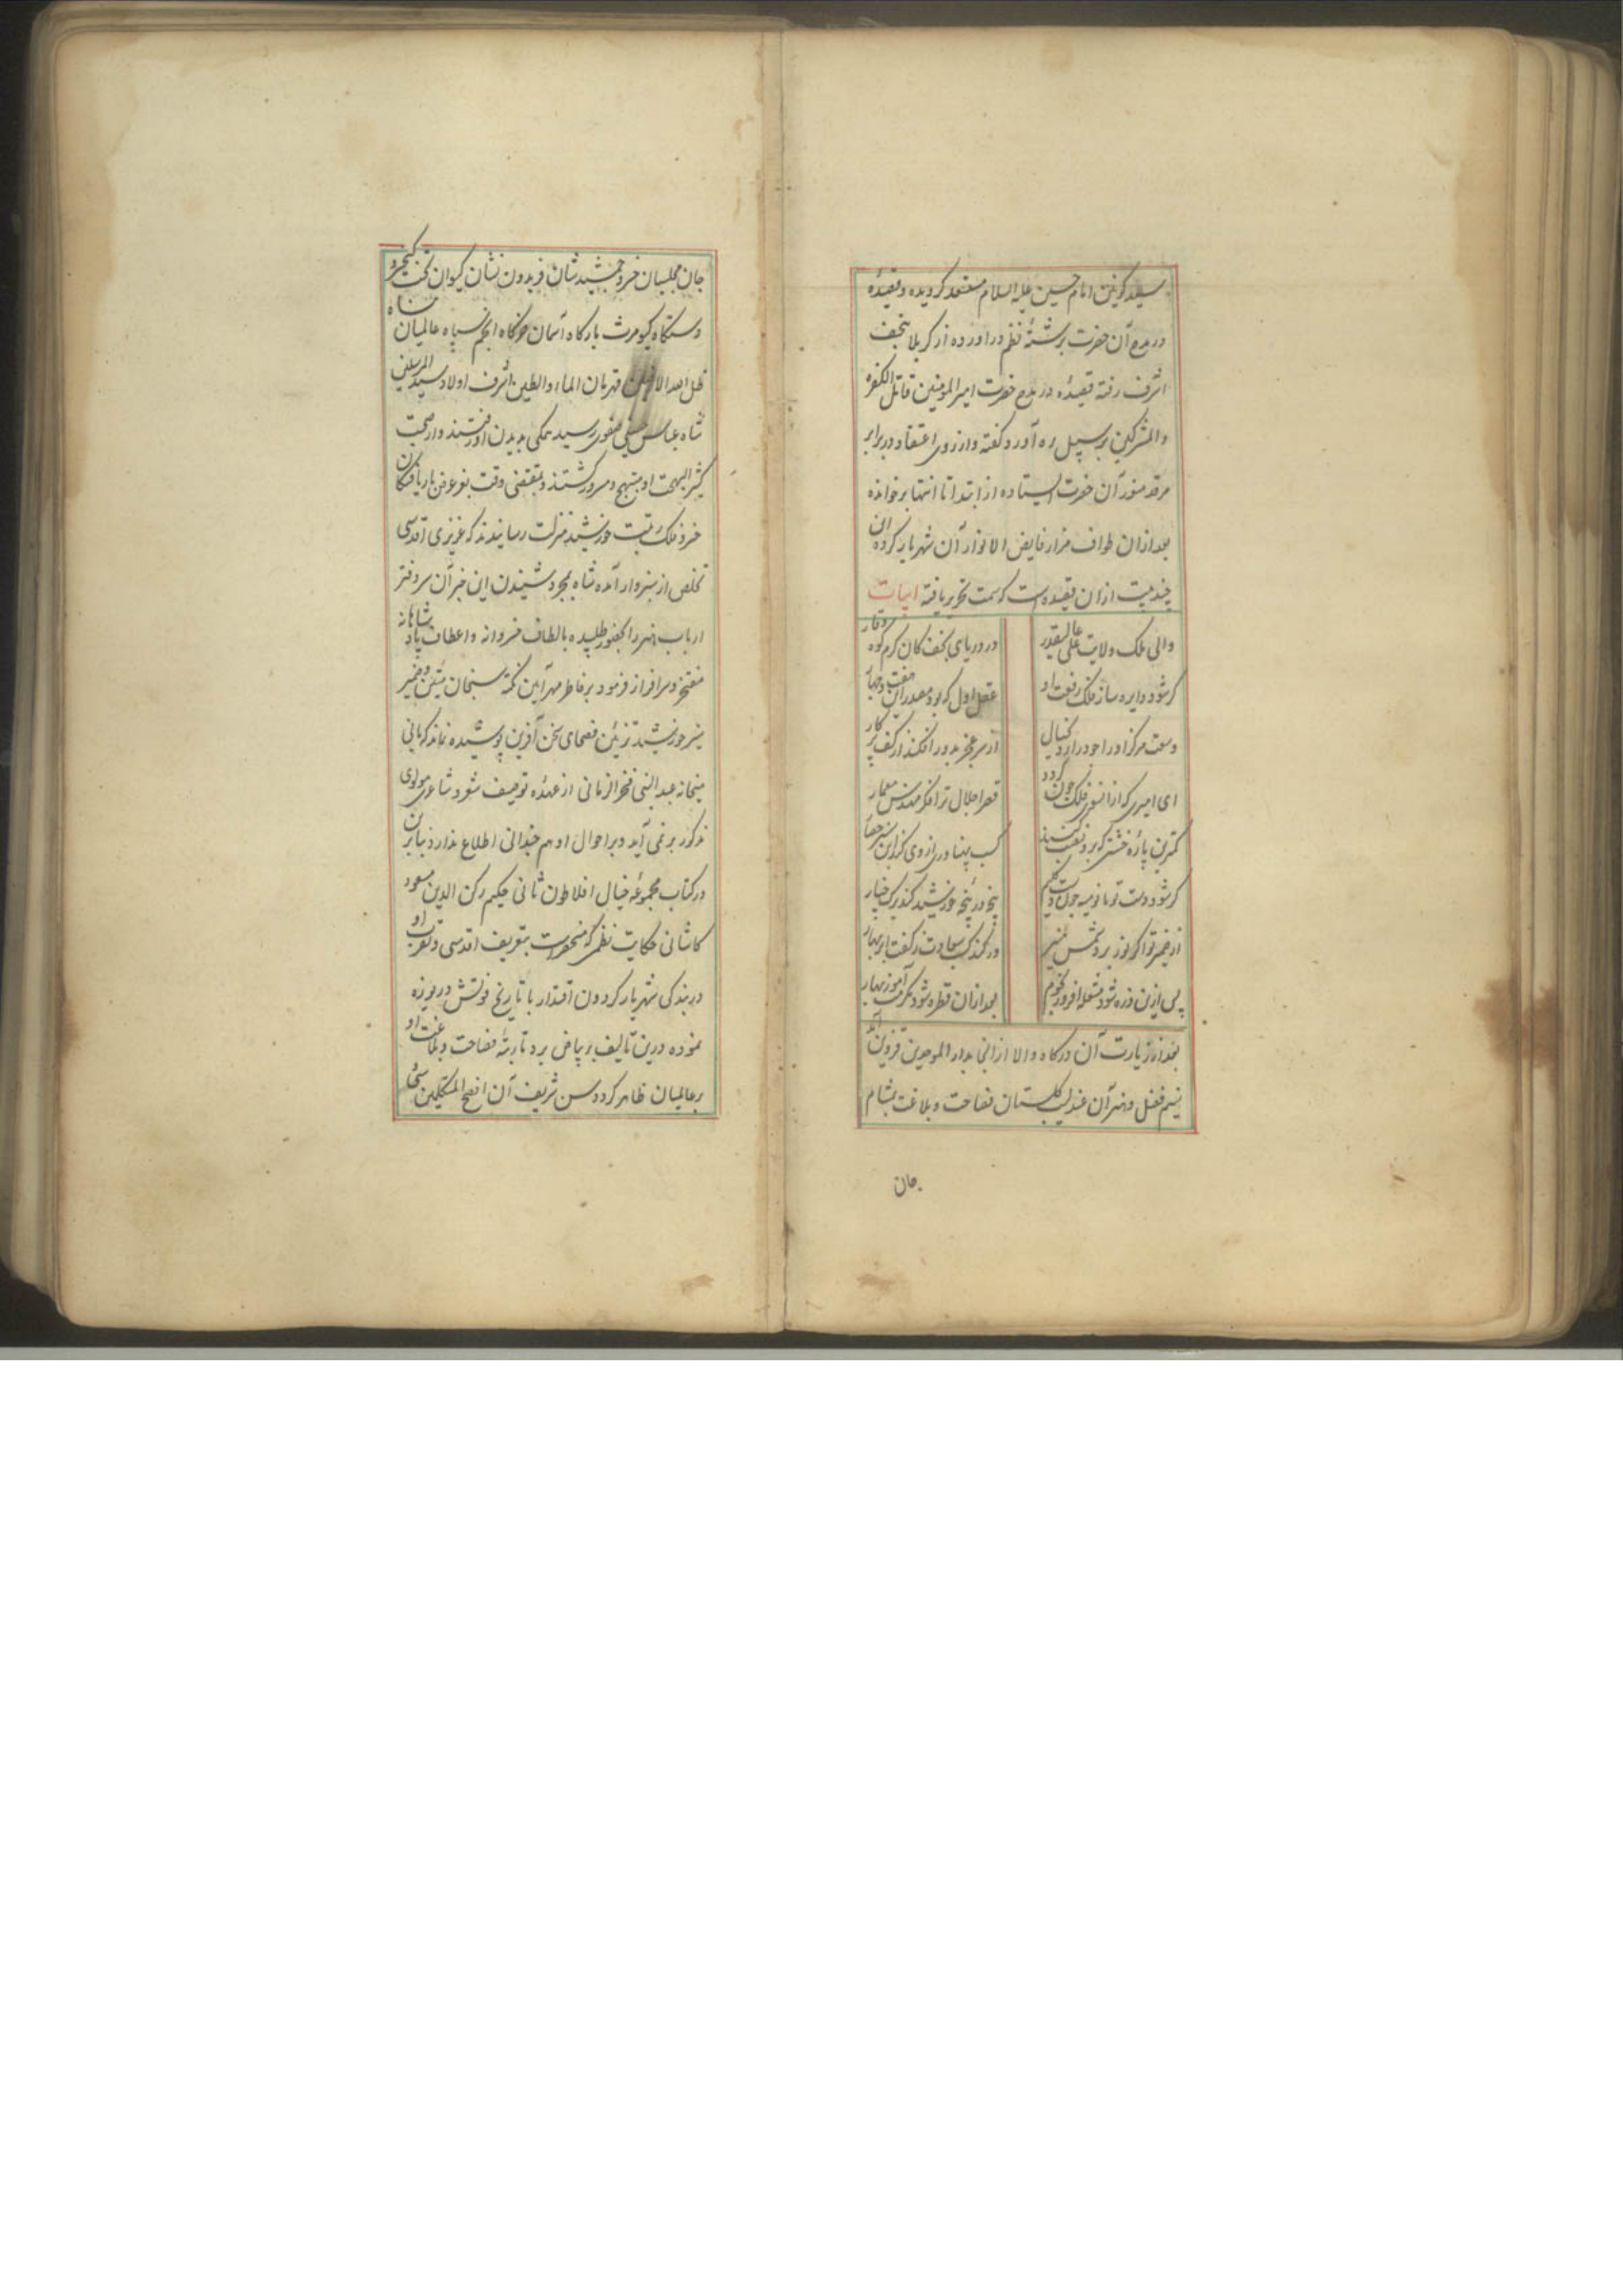 سید کونین امام حسین علیه السلام مستسعد کردیده و قصیدهٔ
در مدح آن حضرت برشتهٔ نظم دراورده از کربلا بنجف
اشرف رفته قصیدهٔ در مدح حضرت امیر المومنین قاتل الکفره
والمشرکین بر سبیل ره آورد کفته و از روی اعتقاد در برابر
مرقد منور آن حضرت ایستاده از ابتدا تا انتها بر خوانده
بعد ازان طواف مزار فایض الانوار آن شهریار کرده این
چند بیت ازان قصیده است که سمت تحریر یافته ابیات
والی ملک ولایت علی عالیقدر
در دریای نجف کان کرم کوه وقار
کر شود دایره ساز فلک رفعت او
عقل اول که بود مصدر این هفت و چهار
وسعت مرکز او را چو درارد بخیال
از سر عجز بدور افکند از کف پرکار
ای امیری که از انسوی فلک چون کردد
قصر اجلال ترا فکر مهندس معمار
کمترین پارهٔ خشتی که برو نصب کنند
کسب پهناوری از وی کند این سبز حصار
کر شود دست تو مانوسه چون دست کلیم
پنجه در پنجه خورشید کند برک چنار
از ضمیر تو اکر نور برد شمس منیر
ور کند کسب سخاوت ز کفت ابر بهار
پس ازین ذره شود مشعله افروز نجوم
بعد ازان قطره شود مکرمت آموز بهار
بعد از زیارت آن درکاه والا ازانجا بدار الموحدین قزوین آمد
نسیم فضل و هنر آن عندلیب کلستان فصاحت و بلاغت بمشام
جان
جان مجلسیان خسرو جمشید شان فریدون نشان کیوان تخت کیخسرو
دستکاه کیومرث بارکاه آسمان خرکاه انجم سپاه شاه عالمیان
ظل الله الارضین قهرمان الماء والطین اشرف اولاد سید المرسلین
شاه عباس حسینی صفوی رسید همکی بدیدن او رفتند و از صحبت
کثیر البهجت او مبتهج و مسرور کشتند و بمقتضی وقت بعرض باریافتکان
خسرو فلک رتبت خورشید منزلت رسانیدند که عزیزی اقدسی
تخلص از سبزوار آمده شاه بمجرد شنیدن این خبر آن سر دفتر
ارباب هنر را بحضور طلبیده بالطاف خسروانه و اعطاف پادشاهانه
مفتخر و سرافراز فرمود بر خاطر مهر آیین نکته سنجان متین و ضمیر
منیر خورشید تزئین فصحای سخن آفرین پوشیده نماند که بانی
میخانه عبد النبی فخر الزمانی از عهدهٔ توصیف شعر و شاعری مولوی
مذکور بر نمی آید و بر احوال او هم چندانی اطلاع ندارد بنابرین
در کتاب مجموعهٔ خیال افلاطون ثانی حکیم رکن الدین مسعود
کاشانی حکایت نظمی که منحصرست بتعریف اقدسی و تقرب او
در بندکی شهریار کردون اقتدار با تاریخ فوتش دریوزه
نموده درین تالیف ببیاض برد تا رتبهٔ فصاحت و بلاغت او
بر عالمیان ظاهر کردد سن شریف آن افصح المتکلمین